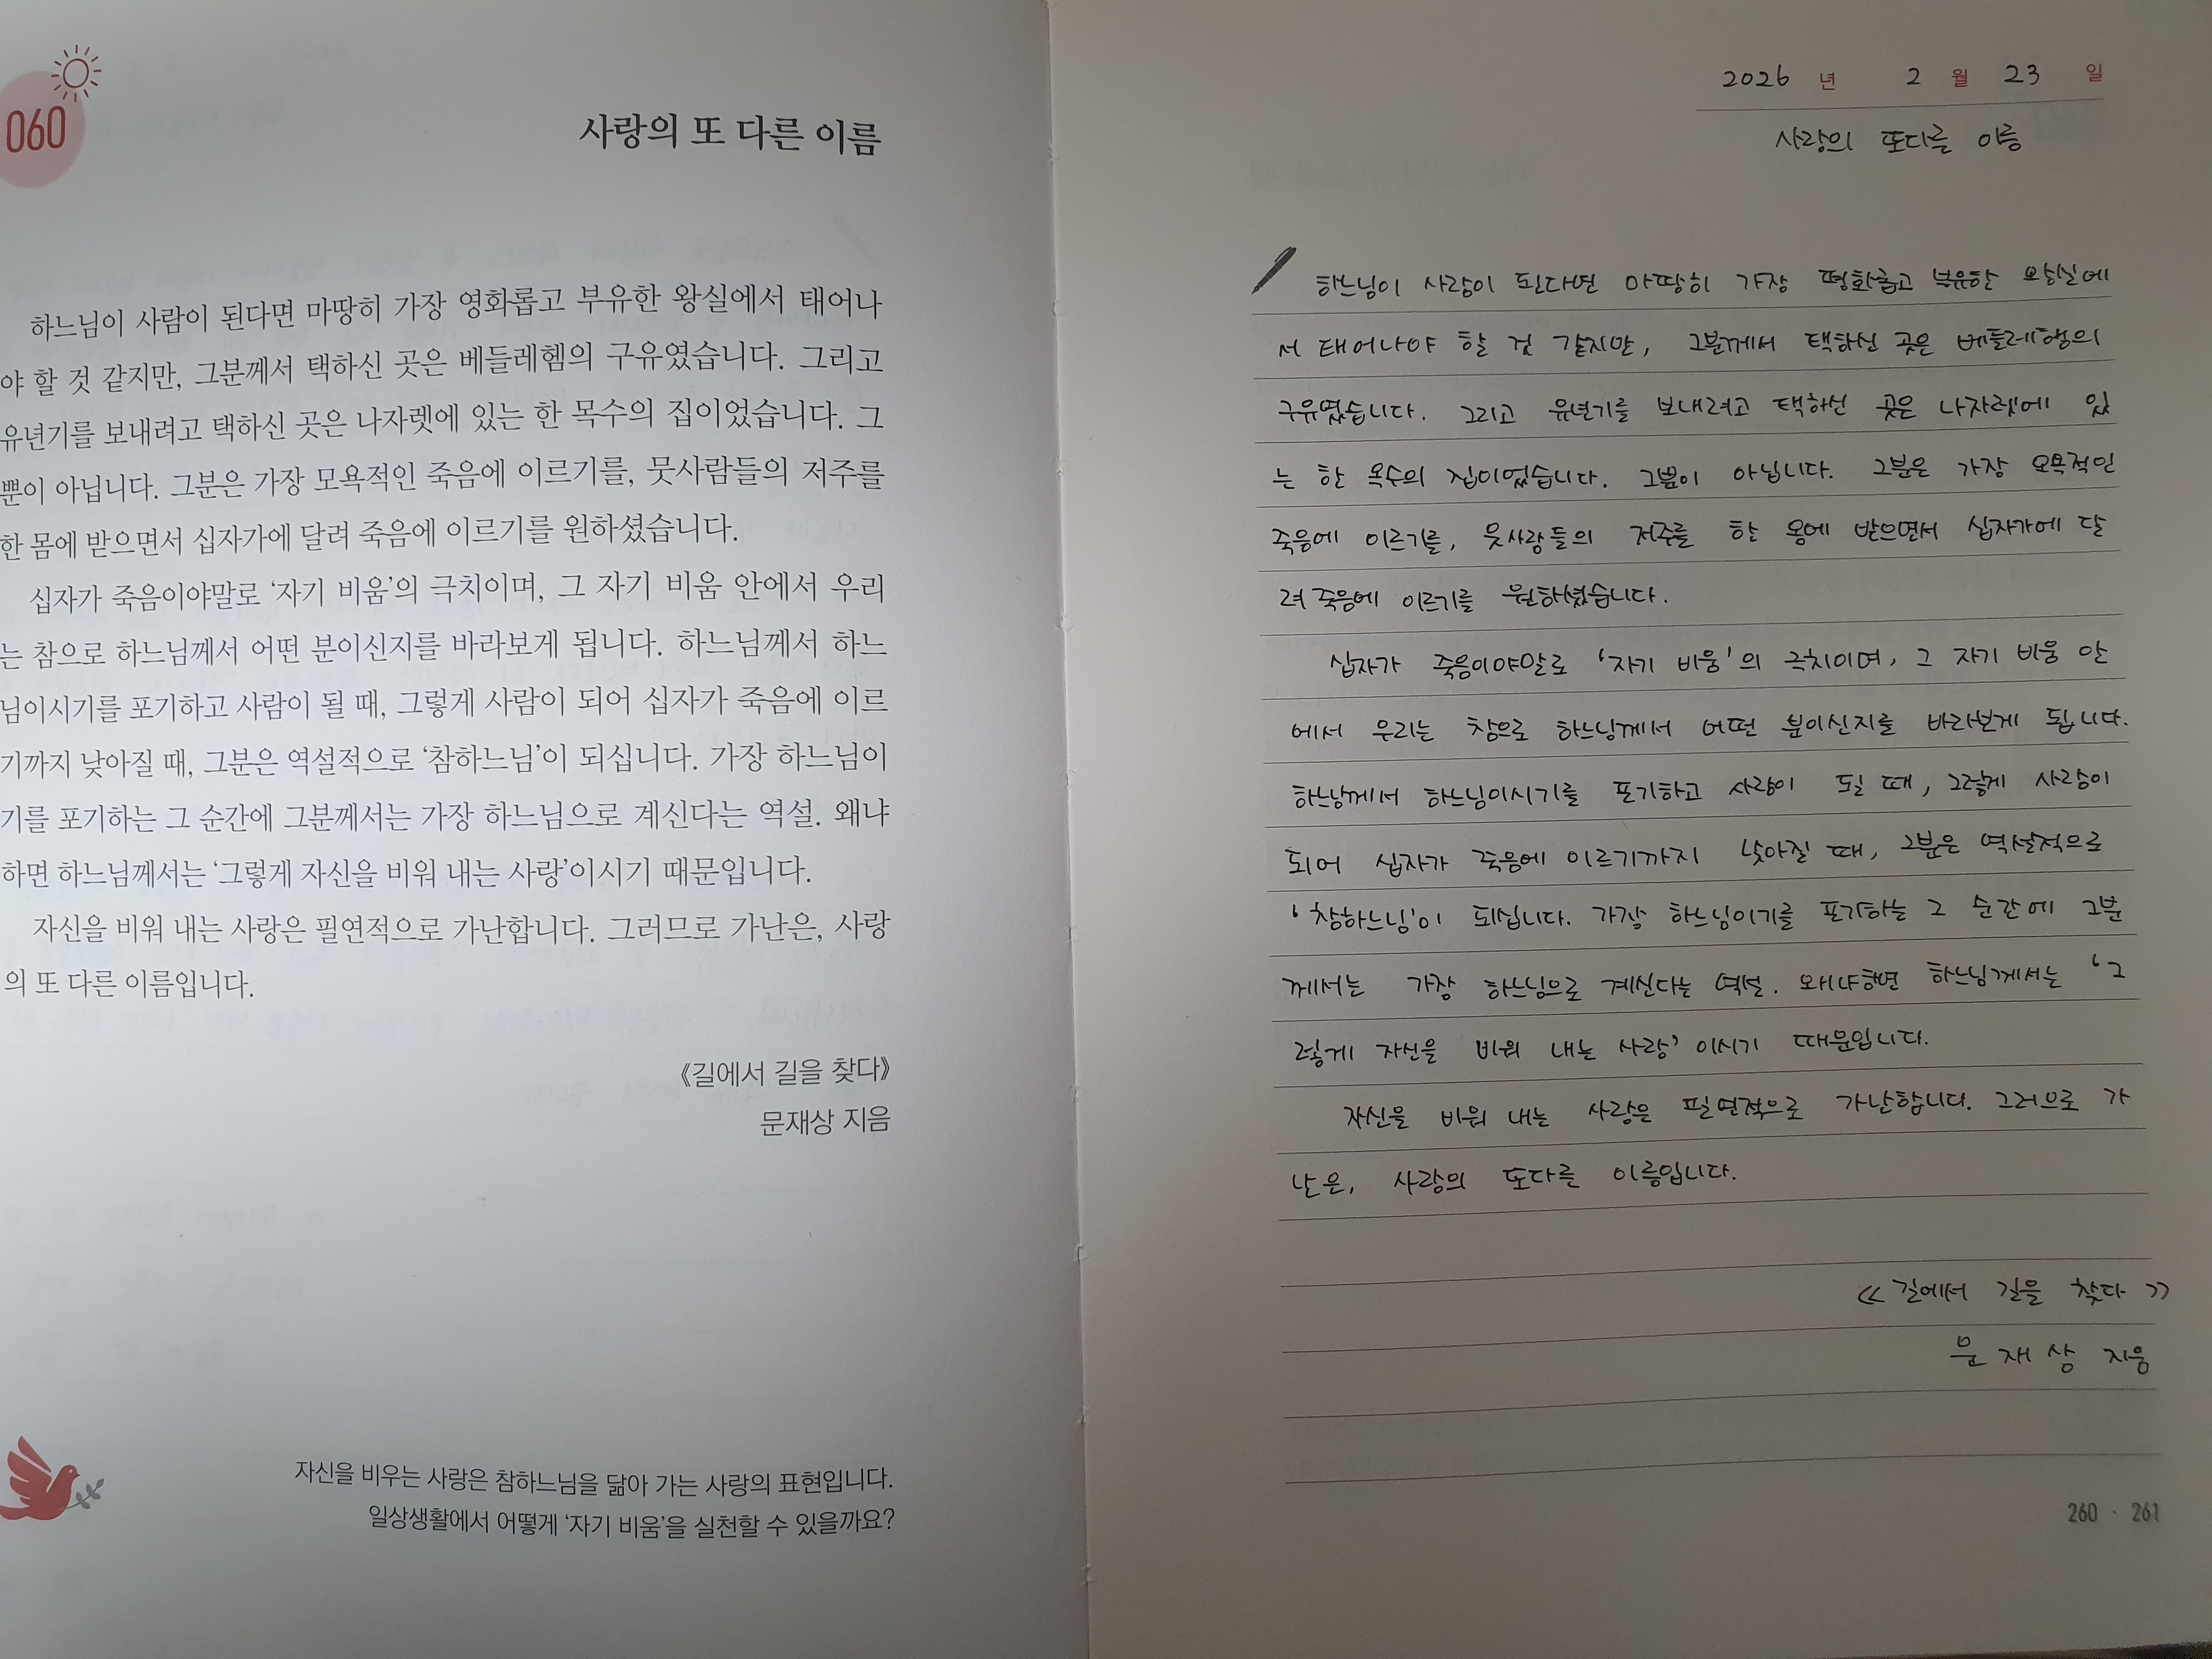 060
사랑의 또 다른 이름
하느님이 사람이 된다면 마땅히 가장 영화롭고 부유한 왕실에서 태어나
야 할 것 같지만, 그분께서 택하신 곳은 베들레헴의 구유였습니다. 그리고
유년기를 보내려고 택하신 곳은 나자렛에 있는 한 목수의 집이었습니다. 그
뿐이 아닙니다. 그분은 가장 모욕적인 죽음에 이르기를, 뭇사람들의 저주를
한 몸에 받으면서 십자가에 달려 죽음에 이르기를 원하셨습니다.
십자가 죽음이야말로 ‘자기 비움’의 극치이며, 그 자기 비움 안에서 우리
는 참으로 하느님께서 어떤 분이신지를 바라보게 됩니다. 하느님께서 하느
님이시기를 포기하고 사람이 될 때, 그렇게 사람이 되어 십자가 죽음에 이르
기까지 낮아질 때, 그분은 역설적으로 ‘참하느님’이 되십니다. 가장 하느님이
기를 포기하는 그 순간에 그분께서는 가장 하느님으로 계신다는 역설. 왜냐
하면 하느님께서는 ‘그렇게 자신을 비워 내는 사랑’이시기 때문입니다.
자신을 비워 내는 사랑은 필연적으로 가난합니다. 그러므로 가난은, 사랑
의 또 다른 이름입니다.
《길에서 길을 찾다》
문재상 지음
자신을 비우는 사랑은 참하느님을 닮아 가는 사랑의 표현입니다.
일상생활에서 어떻게 ‘자기 비움’을 실천할 수 있을까요?
2026 년 2 월 23 일
사랑의 또다른 이름
하느님이 사람이 된다면 마땅히 가장 평화롭고 부유한 왕실에
서 태어나야 할 것 같지만, 그분께서 택하신 곳은 베들레헴의
구유였습니다. 그리고 유년기를 보내려고 택하신 곳은 나자렛에 있
는 한 목수의 집이었습니다. 그뿐이 아닙니다. 그분은 가장 모욕적인
죽음에 이르기를, 뭇사람들의 저주를 한 몸에 받으면서 십자가에 달
려 죽음에 이르기를 원하셨습니다.
십자가 죽음이야말로 ‘자기 비움’의 극치이며, 그 자기 비움 안
에서 우리는 참으로 하느님께서 어떤 분이신지를 바라보게 됩니다.
하느님께서 하느님이시기를 포기하고 사람이 될 때, 그렇게 사람이
되어 십자가 죽음에 이르기까지 낮아질 때, 그분은 역설적으로
‘참하느님’이 되십니다. 가장 하느님이기를 포기하는 그 순간에 그분
께서는 가장 하느님으로 계신다는 역설. 왜냐하면 하느님께서는 ‘그
렇게 자신을 비워 내는 사랑’이시기 때문입니다.
자신을 비워 내는 사랑은 필연적으로 가난합니다. 그러므로 가
난은, 사랑의 또다른 이름입니다.
《길에서 길을 찾다》
문재상 지음
260 · 261